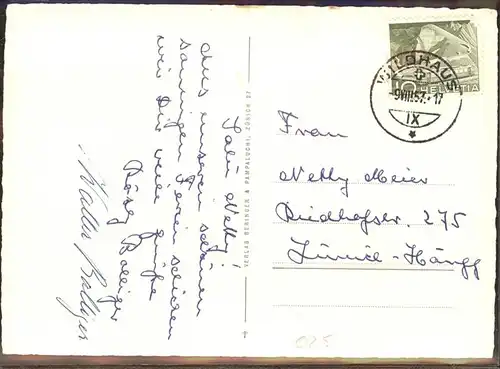 Salü Netty!
Aus unseren schönen
sonnigen Ferien schicken
wir Dir viele Grüsse
Rösy Bolliger
Walter Bolliger
VERLAG BERINGER & PAMPALUCHI, ZÜRICH 27
WILDHAUS
-9.VIII.53.-17
IX
10 HELVETIA
Frau
Netty Meier
Riedhofstr. 275
Zürich-Höngg
025